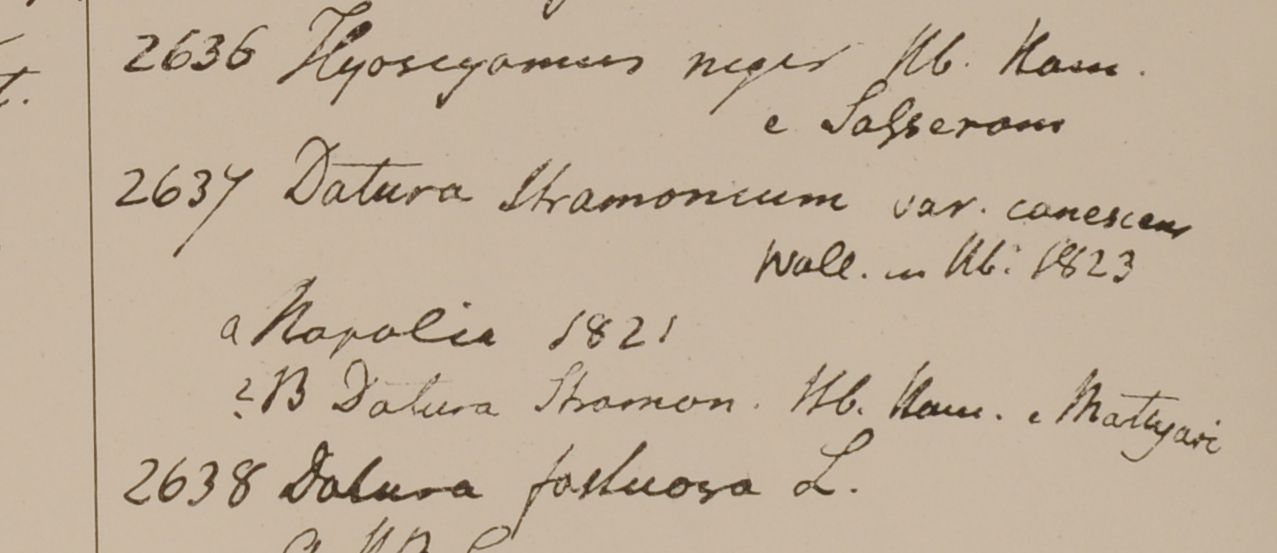 2636 Hyoscyamus niger Hb. Ham.
e Sasseram
2637 Datura Stramonium var. canescens
Wall. in Hb. 1823
a Napalia 1821
? B Datura Stramon. Hb. Ham. e Mattyari
2638 Datura fastuosa L.